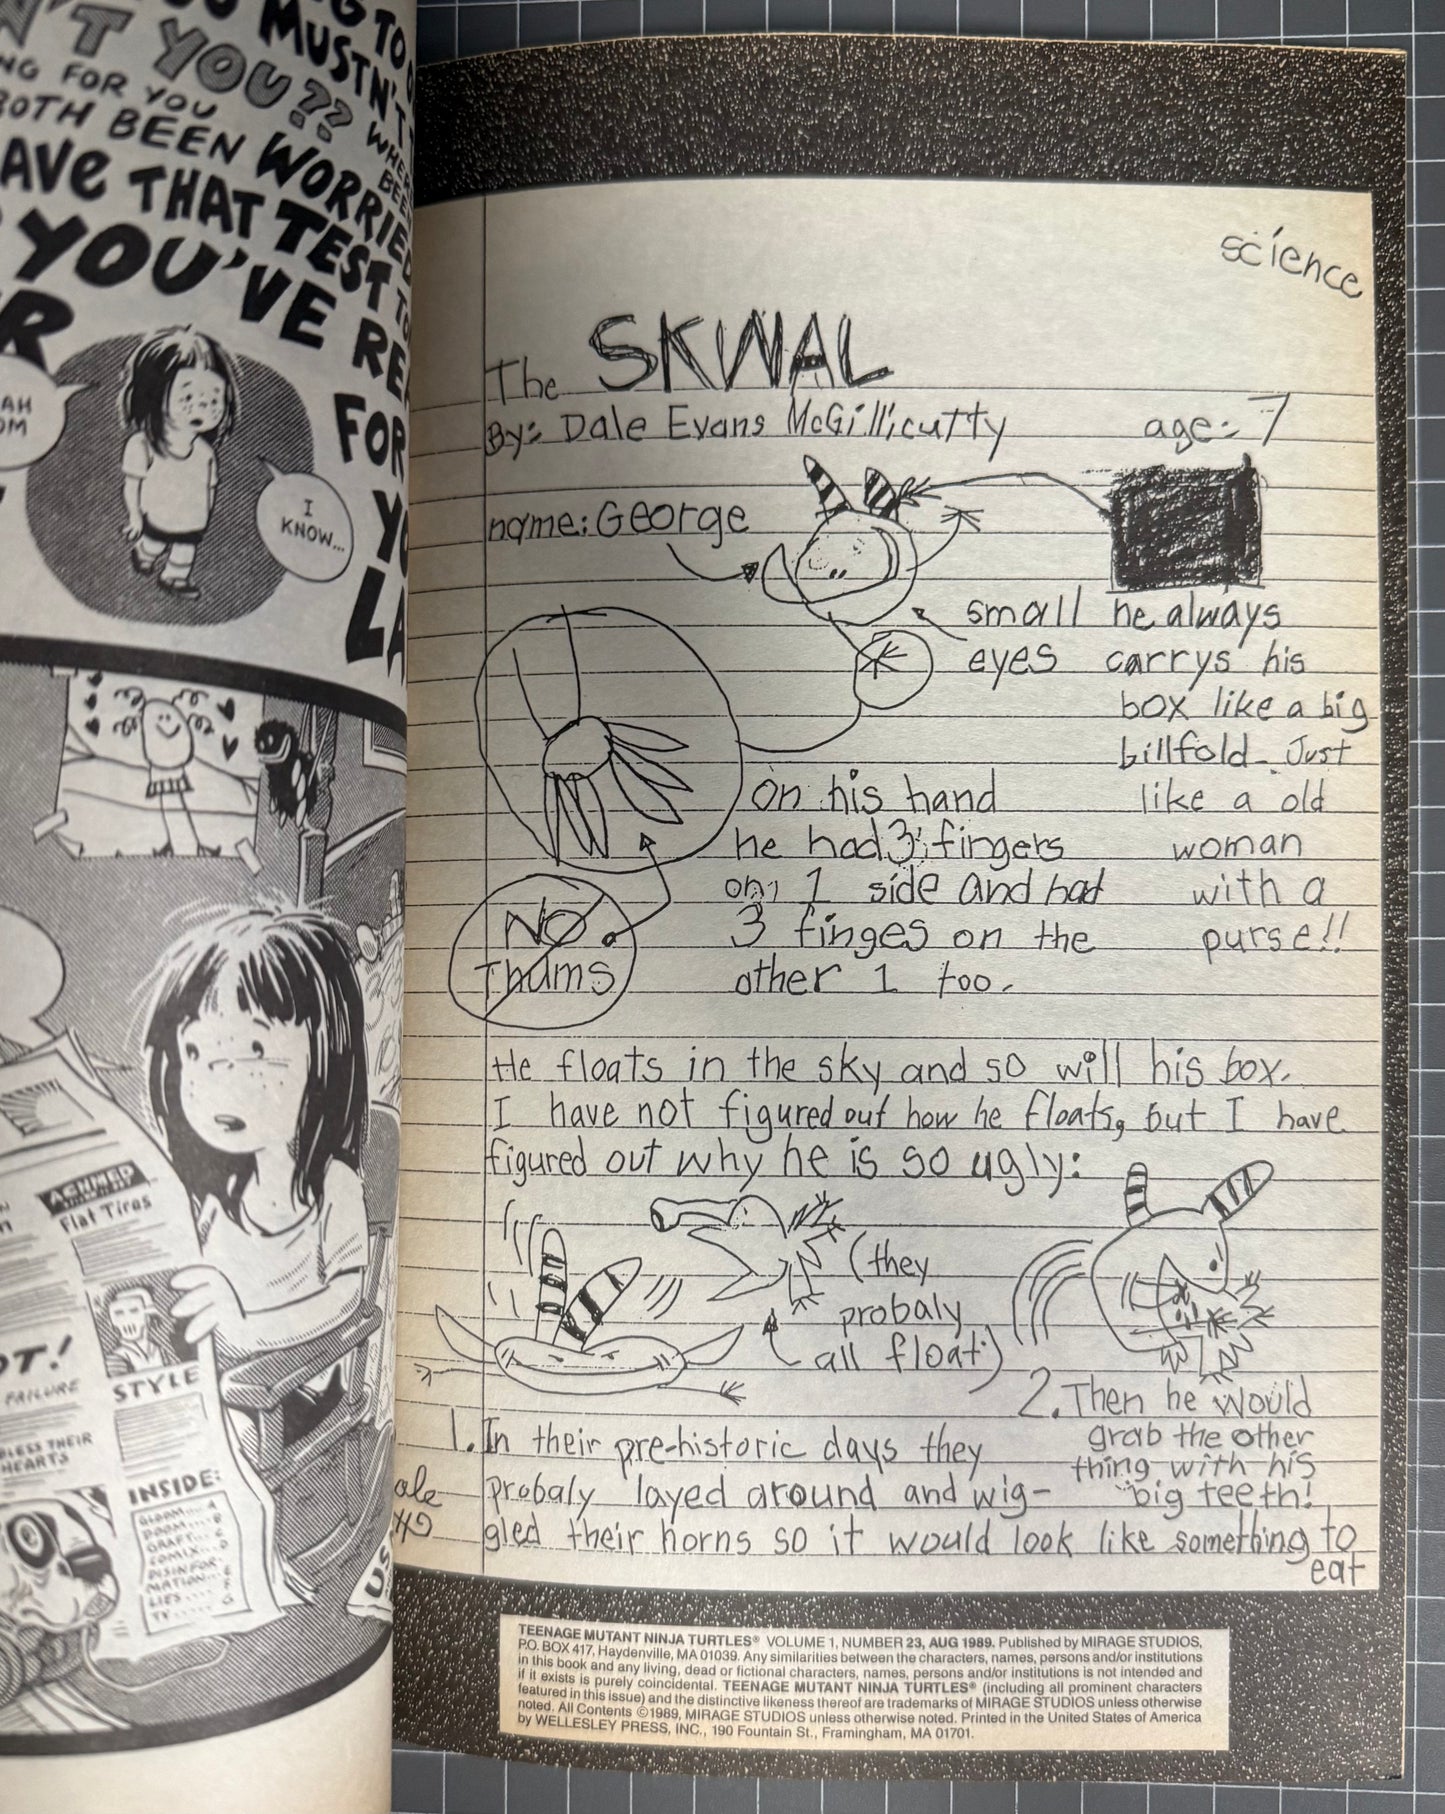 G TO
MUSTN'T
'T YOU??
NG FOR YOU
BOTH BEEN WORRIED
AVE THAT TEST TO
YOU'VE REA
R
FOR
YO
LA
AH
OM
I
KNOW...
ARMED
Flat Tires
OT!
FAILURE
STYLE
BLESS THEIR
HEARTS
INSIDE:
GLOOM.... A
DOOM.... B
GRAFT... C
COMIX... D
DISINFOR-
MATION.... E
LIES..... F
TV..... G
US
science
The SKWAL
By: Dale Evans McGillicutty age: 7
name: George
small
eyes
he always
carrys his
box like a big
billfold. Just
like a old
woman
with a
purse!!
on his hand
he had 3 fingers
on 1 side and had
3 finges on the
other 1 too.
NO
Thums
He floats in the sky and so will his box.
I have not figured out how he floats, but I have
figured out why he is so ugly:
(they
probaly
all float)
1. In their pre-historic days they
probaly layed around and wig-
gled their horns so it would look like something to
eat
2. Then he would
grab the other
thing with his
big teeth!
TEENAGE MUTANT NINJA TURTLES® VOLUME 1, NUMBER 23, AUG 1989. Published by MIRAGE STUDIOS,
P.O. BOX 417, Haydenville, MA 01039. Any similarities between the characters, names, persons and/or institutions
in this book and any living, dead or fictional characters, names, persons and/or institutions is not intended and
if it exists is purely coincidental. TEENAGE MUTANT NINJA TURTLES® (including all prominent characters
featured in this issue) and the distinctive likeness thereof are trademarks of MIRAGE STUDIOS unless otherwise
noted. All Contents ©1989, MIRAGE STUDIOS unless otherwise noted. Printed in the United States of America
by WELLESLEY PRESS, INC., 190 Fountain St., Framingham, MA 01701.